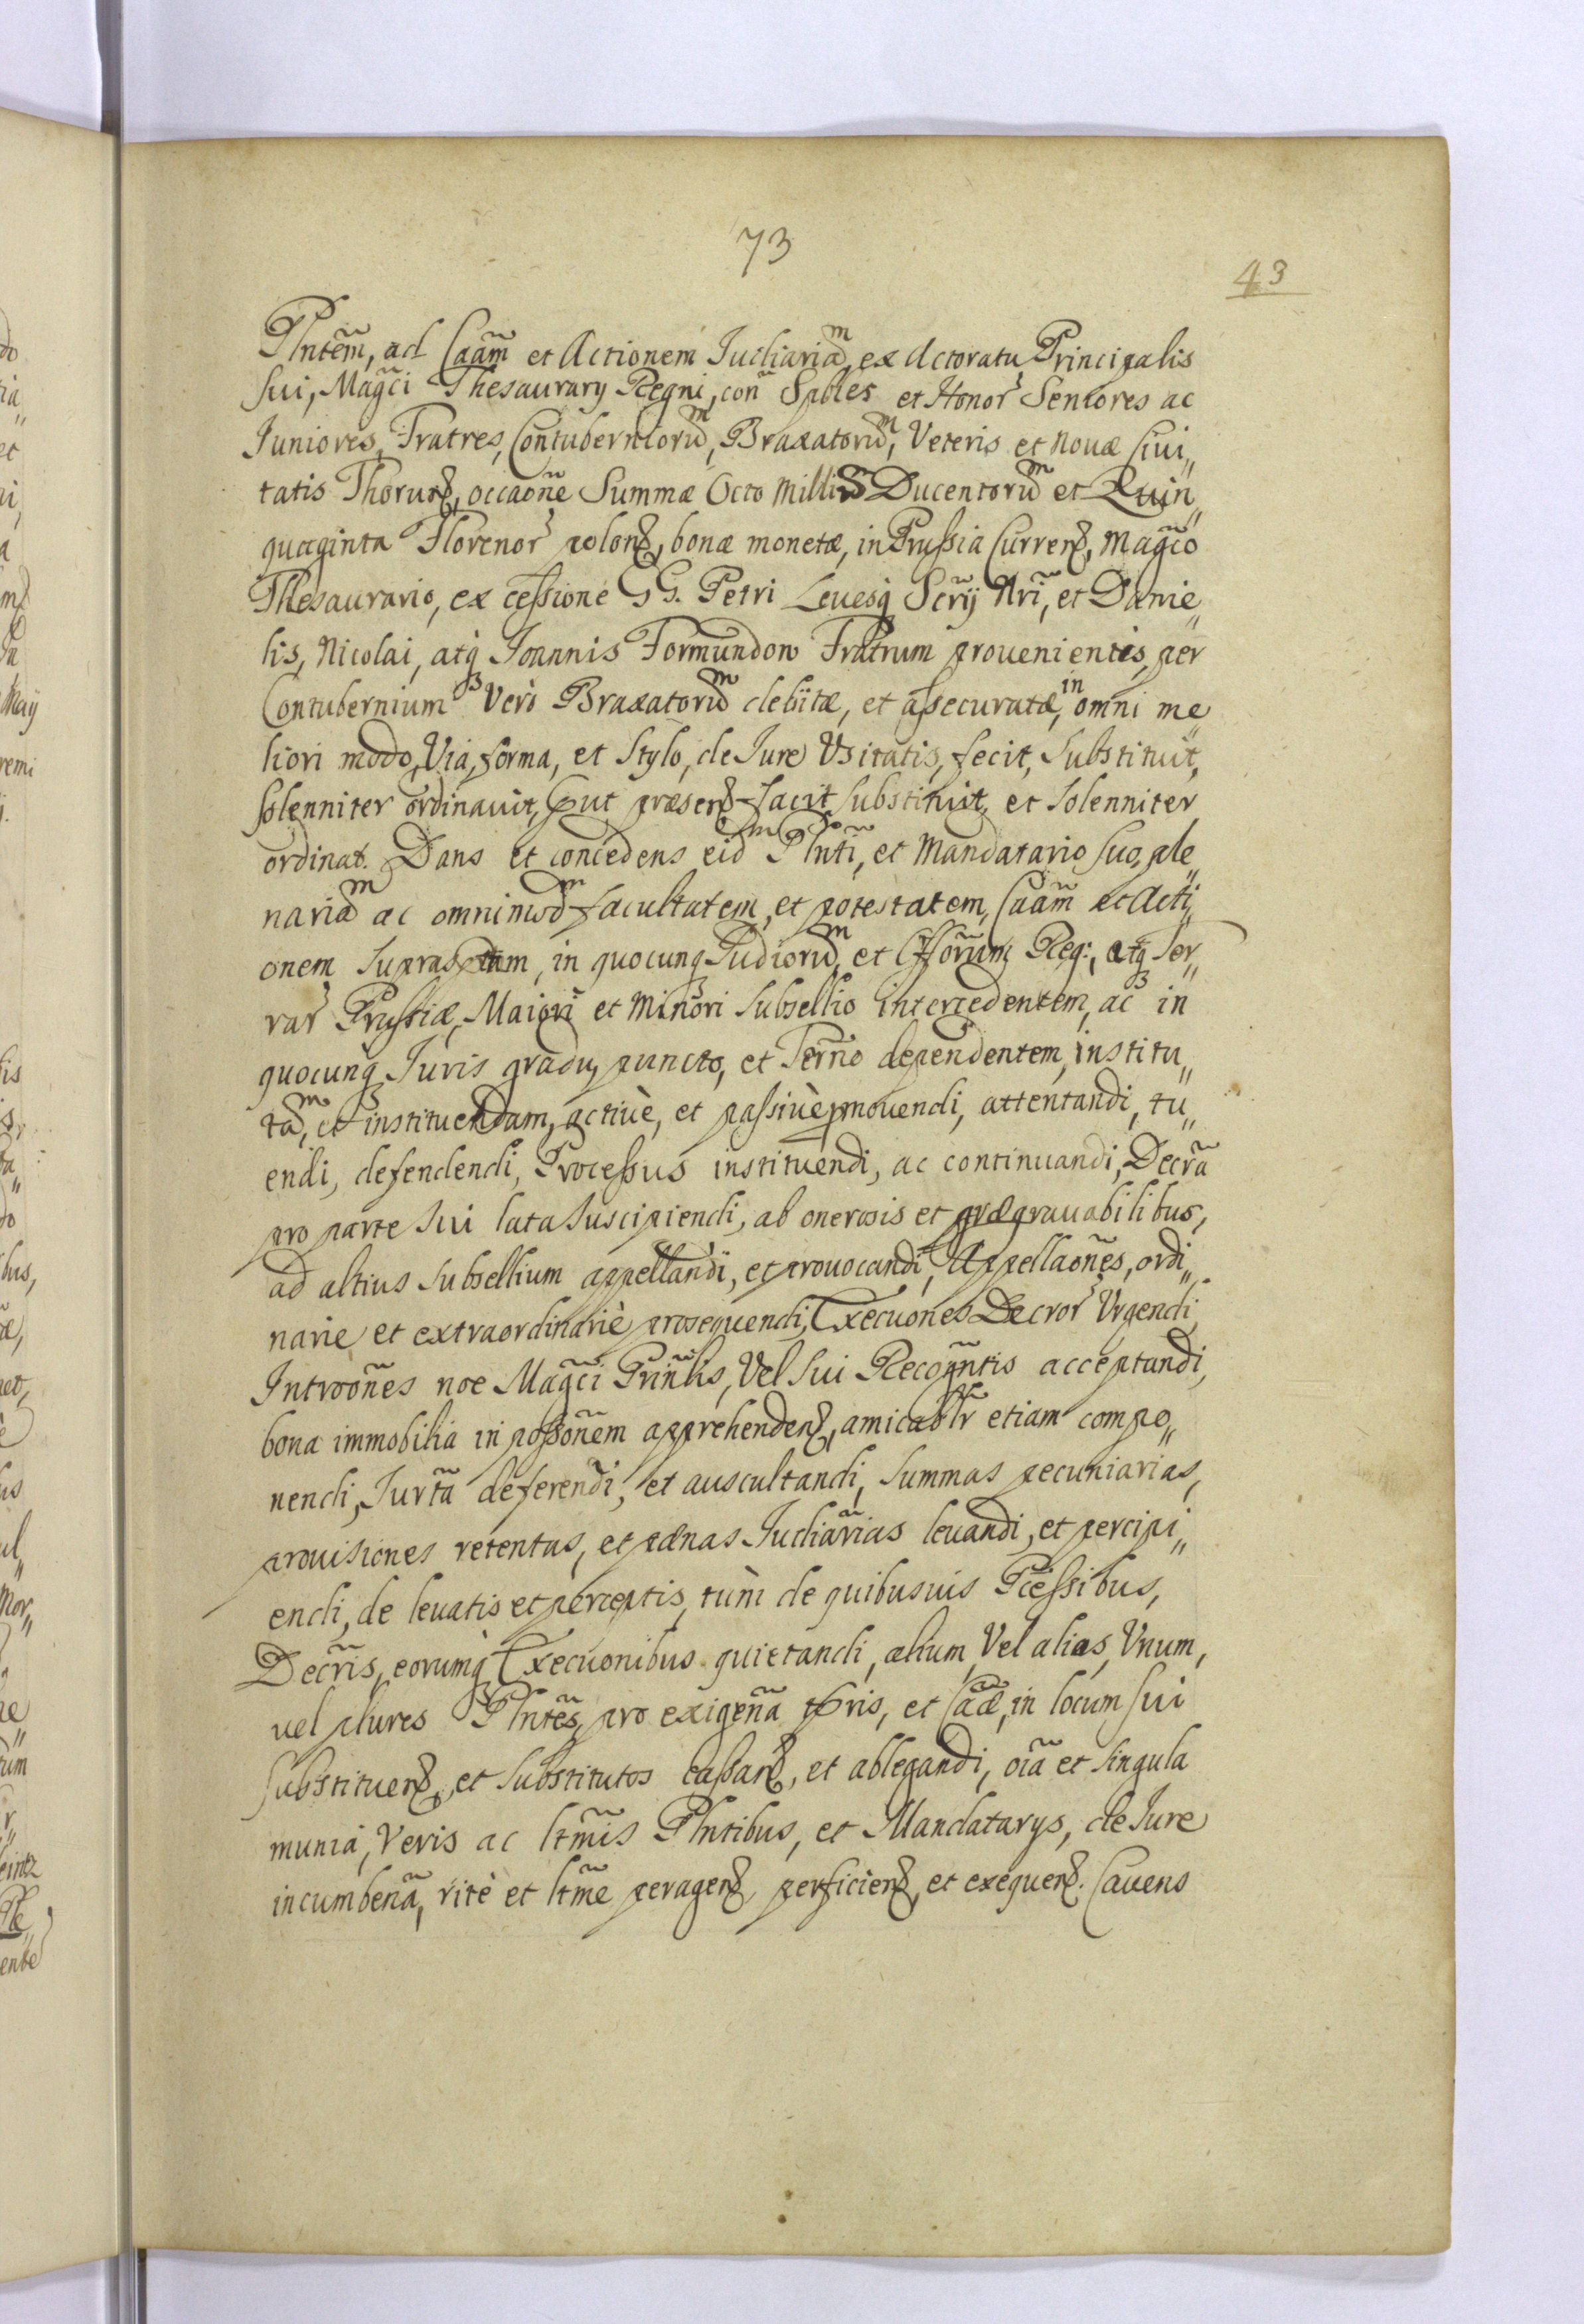 73
43
Plntem̃, ad Caãm et Actionem Iudiariam, ex Actoratu Principalis
sui, Magc̃i Thesaurarij Regni, coñ Spbles et Honor Seniores ac
Iuniores, Fratres, Contuberniorum, Braxatorum, Veteris et Nouæ Ciui„
tatis Thoruñ, occaoñe Summæ Octo Millium Ducentorum et Quin„
quaginta Florenor poloñ, bonæ monetæ, in Prußia Curreñ, Magc̃o
Thesaurario, ex ceßione GG. Petri Leuesq Scrĩj Nrĩ, et Danie„
lis, Nicolai, atq Ioannis Formundon Fratrum prouenientis, per
Contubernium Verò Braxatorum debitæ, et aßecuratæ, in omni me„
liori modo, Via, forma, et Stylo, de Iure Vsitatis, fecit, Substituit,
solenniter ordinauit, Prout præsenß facit substituit, et solenniter
ordinat. Dans et concedens eidm Plntĩ, et Mandatario suo, ple„
nariam ac omnimodm facultatem, et potestatem, Caãm et Acti„
onem suprasptam, in quocunq Iudiorum, et Offõrum, Reg:, atq Ter„
rar Prußiæ, Maiori et Minori Subsellio intercedentem, ac in
quocunq Iuris gradu, puncto, et Termño dependentem, institu„
tam, et instituendam, actiuè, et paßiuè pmouendi, attentandi, tu„
endi, defendendi, Proceßus instituendi, ac continuandi, Decrã
pro parte sui lata suscipiendi, ab onerosis et prægrauabilibus,
ad altius subsellium appellandi, et prouocandi, Appellaoñes, ordi„
narie et extraordinariè prosequendi, Execuones Decror Vrgendi,
Introoñes noe Magc̃i Prinlis, Vel sui Recognt̃is acceptandi,
bona immobilia in poßoñem apprehendenß, amicablr etiam compo„
nendi, Iurtã deferendi, et auscultandi, summas pecuniarias,
prouisiones retentas, et pænas Iudiarias leuandi, et percipi„
endi, de leuatis et perceptis, tùm de quibusuis Pceßibus,
Decrĩs, eorumq Execuonibus quietandi, alium, Vel alias, Vnum,
uel plures Plntẽs, pro exigeñã tpris, et Caæ, in locum sui
substituenß, et substitutos caßanß, et ablegandi, oĩa et singula
munia, Veris ac ltm̃is Plntibus, et Mandatarijs, de Iure
incumbeñã, ritè et ltm̃e peragenß, perficienß, et exequenß. Cauens